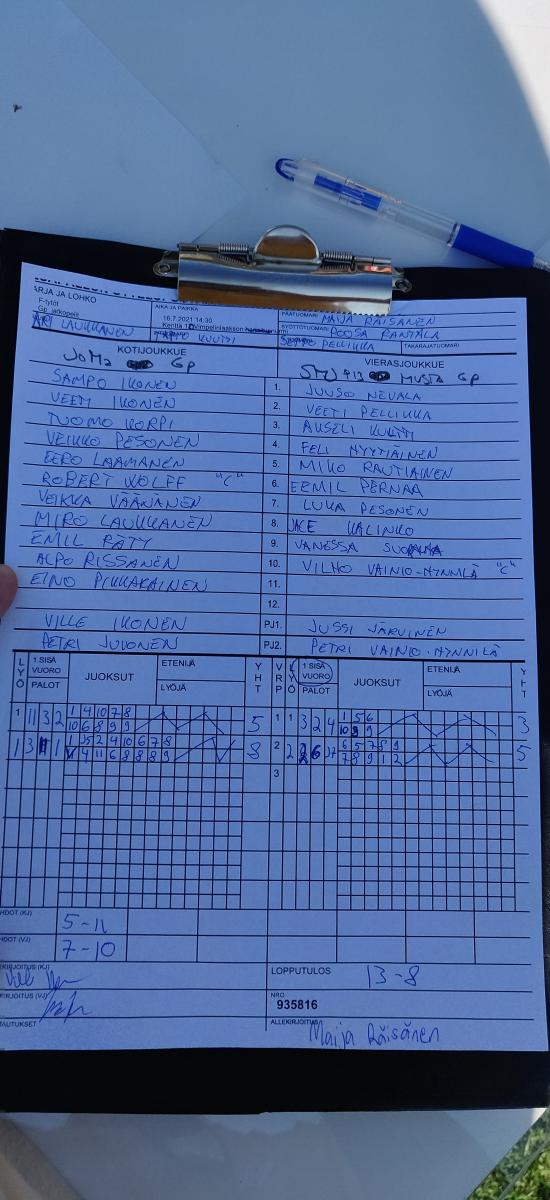 ARJA JA LOHKO
F-tytöt
Gp Jatkopelit
AIKA JA PAIKKA
16.7.2021 14:30
PÄÄTUOMARI MAIJA RÄISÄNEN
SYÖTTÖTUOMARI ROOSA RANTALA
ARI LAUKKANEN
TAPIO KUUTTI
SEPPO PELLIKKA
TAKARAJATUOMARI
KOTIJOUKKUE
VIERASJOUKKUE
JoMa GP
SMJ MUSTA GP
SAMPO IKONEN 1. JUUSO NEVALA
VEETI IKONEN 2. VEETI PELLIKKA
TUOMO KORPI 3. AKSELI KUUTTI
VEIKKO PESONEN 4. FELI NYYTIÄINEN
EERO LAAMANEN 5. MIKO RAUTIAINEN
ROBERT WOLFF "C" 6. EEMIL PERNAA
VEIKKA VÄÄNÄNEN 7. LUKA PESONEN
MIRO LAUKKANEN 8. JACE KALINKO
EMIL RÄTY 9. VANESSA
ALPO RISSANEN 10. VILHO VAINIO-MYNNILÄ "C"
EINO PIKKARAINEN 11.
12.
VILLE IKONEN PJ1. JUSSI JÄRVINEN
PETRI JUVONEN PJ2. PETRI VAINIO-MYNNILÄ
LYÖ 1.SISÄVUORO PALOT JUOKSUT ETENIJÄ LYÖJÄ YHT VRP LYÖ 1.SISÄVUORO PALOT JUOKSUT ETENIJÄ LYÖJÄ YHT
1 11 3 2 1 4 10 7 8 5 1 1 3 2 4 1 5 6 3
10 6 8 9 9 10 8 9
1 3 1 2 4 10 6 7 8 8 2 2 6 6 5 7 8 9 5
4 11 6 8 8 8 9 7 8 9 1 2
3
HDOT (KJ) 5-11
HDOT (VJ) 7-10
EKIRJOITUS (KJ)
LOPPUTULOS 13-8
KIRJOITUS (VJ)
NRO
935816
AUTUKSET
ALLEKIRJOITUS
Maija Räisänen